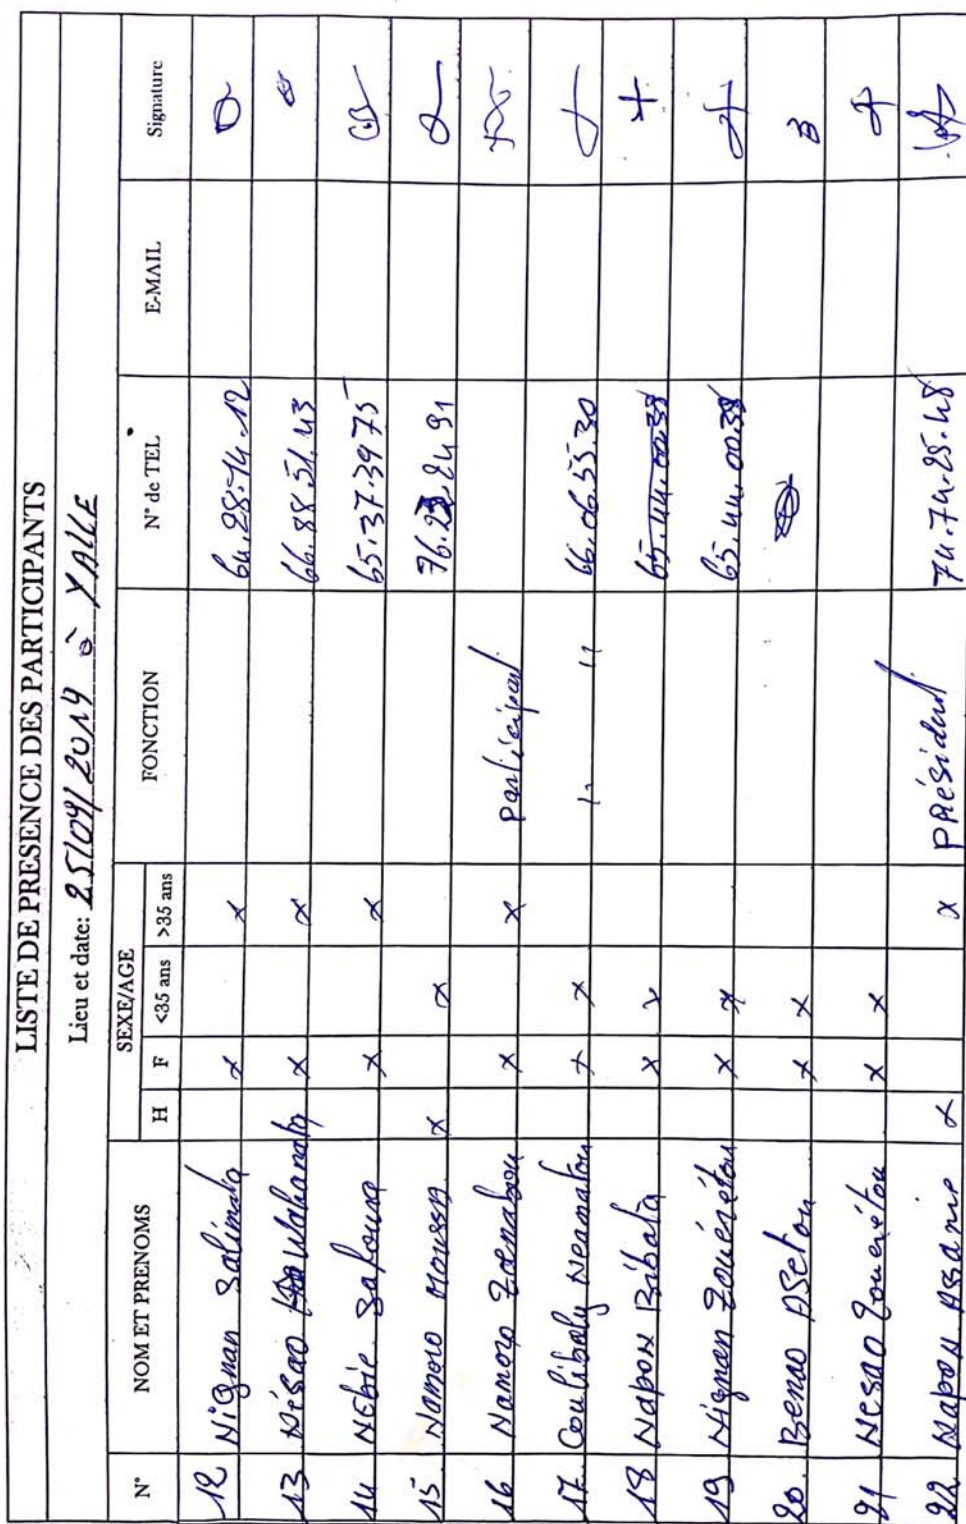 LISTE DE PRESENCE DES PARTICIPANTS
Lieu et date: 25/09/2019 à YALLE
N° NOM ET PRENOMS SEXE/AGE FONCTION N° de TEL E-MAIL Signature
H F <35 ans >35 ans
12 Nignan Salimata x x 64.28.14.12
13 Nésao x x 66.88.51.43
14 Nébie Safoura x x 65.37.39 75
15 Namoro Moussa x x 76. 24 91
16 Namoro Zoenabou x x participant
17. Coulibaly Neamatou x x " " 66.06.55.30
18 Napon Bibata x x 65.44.00.38
19 Nignan Zouénétou x x 65.44.00.38
20. Benao ASetou x x
21 Nesao Zouenétou x x
22 Napon Assane x x PRésident 74.74.25.48